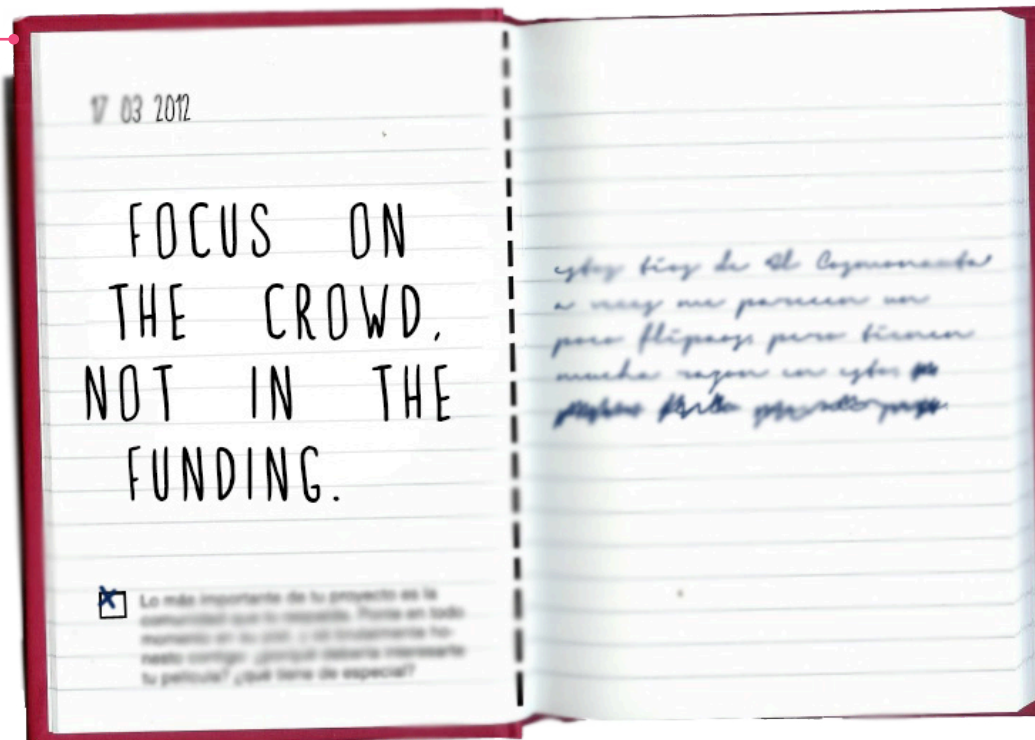 17 03 2012
FOCUS ON
THE CROWD,
NOT IN THE
FUNDING.
Lo más importante de tu proyecto es la
comunidad que lo respalda. Ponla en todo
momento en su
nesto contigo: ¿porqué debería interesarte
tu película? ¿qué tiene de especial?
estos tíos de El Cosmonauta
a veces me parecen un
poco flipaos, pero tienen
mucha razon en esto.